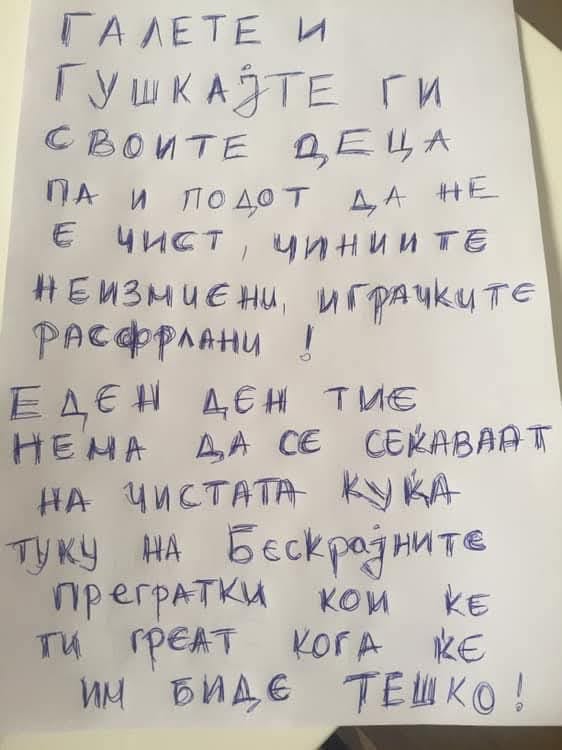 ГАЛЕТЕ И
ГУШКАЈТЕ ГИ
СВОИТЕ ДЕЦА
ПА И ПОДОТ ДА НЕ
Е ЧИСТ, ЧИНИИТЕ
НЕИЗМИЕНИ, ИГРАЧКИТЕ
РАСФРЛАНИ !
ЕДЕН ДЕН ТИЕ
НЕМА ДА СЕ СЕЌАВААТ
НА ЧИСТАТА КУЌА
ТУКУ НА БЕСКРАЈНИТЕ
ПРЕГРАТКИ КОИ ЌЕ
ТИ ГРЕАТ КОГА ЌЕ
ИМ БИДЕ ТЕШКО !